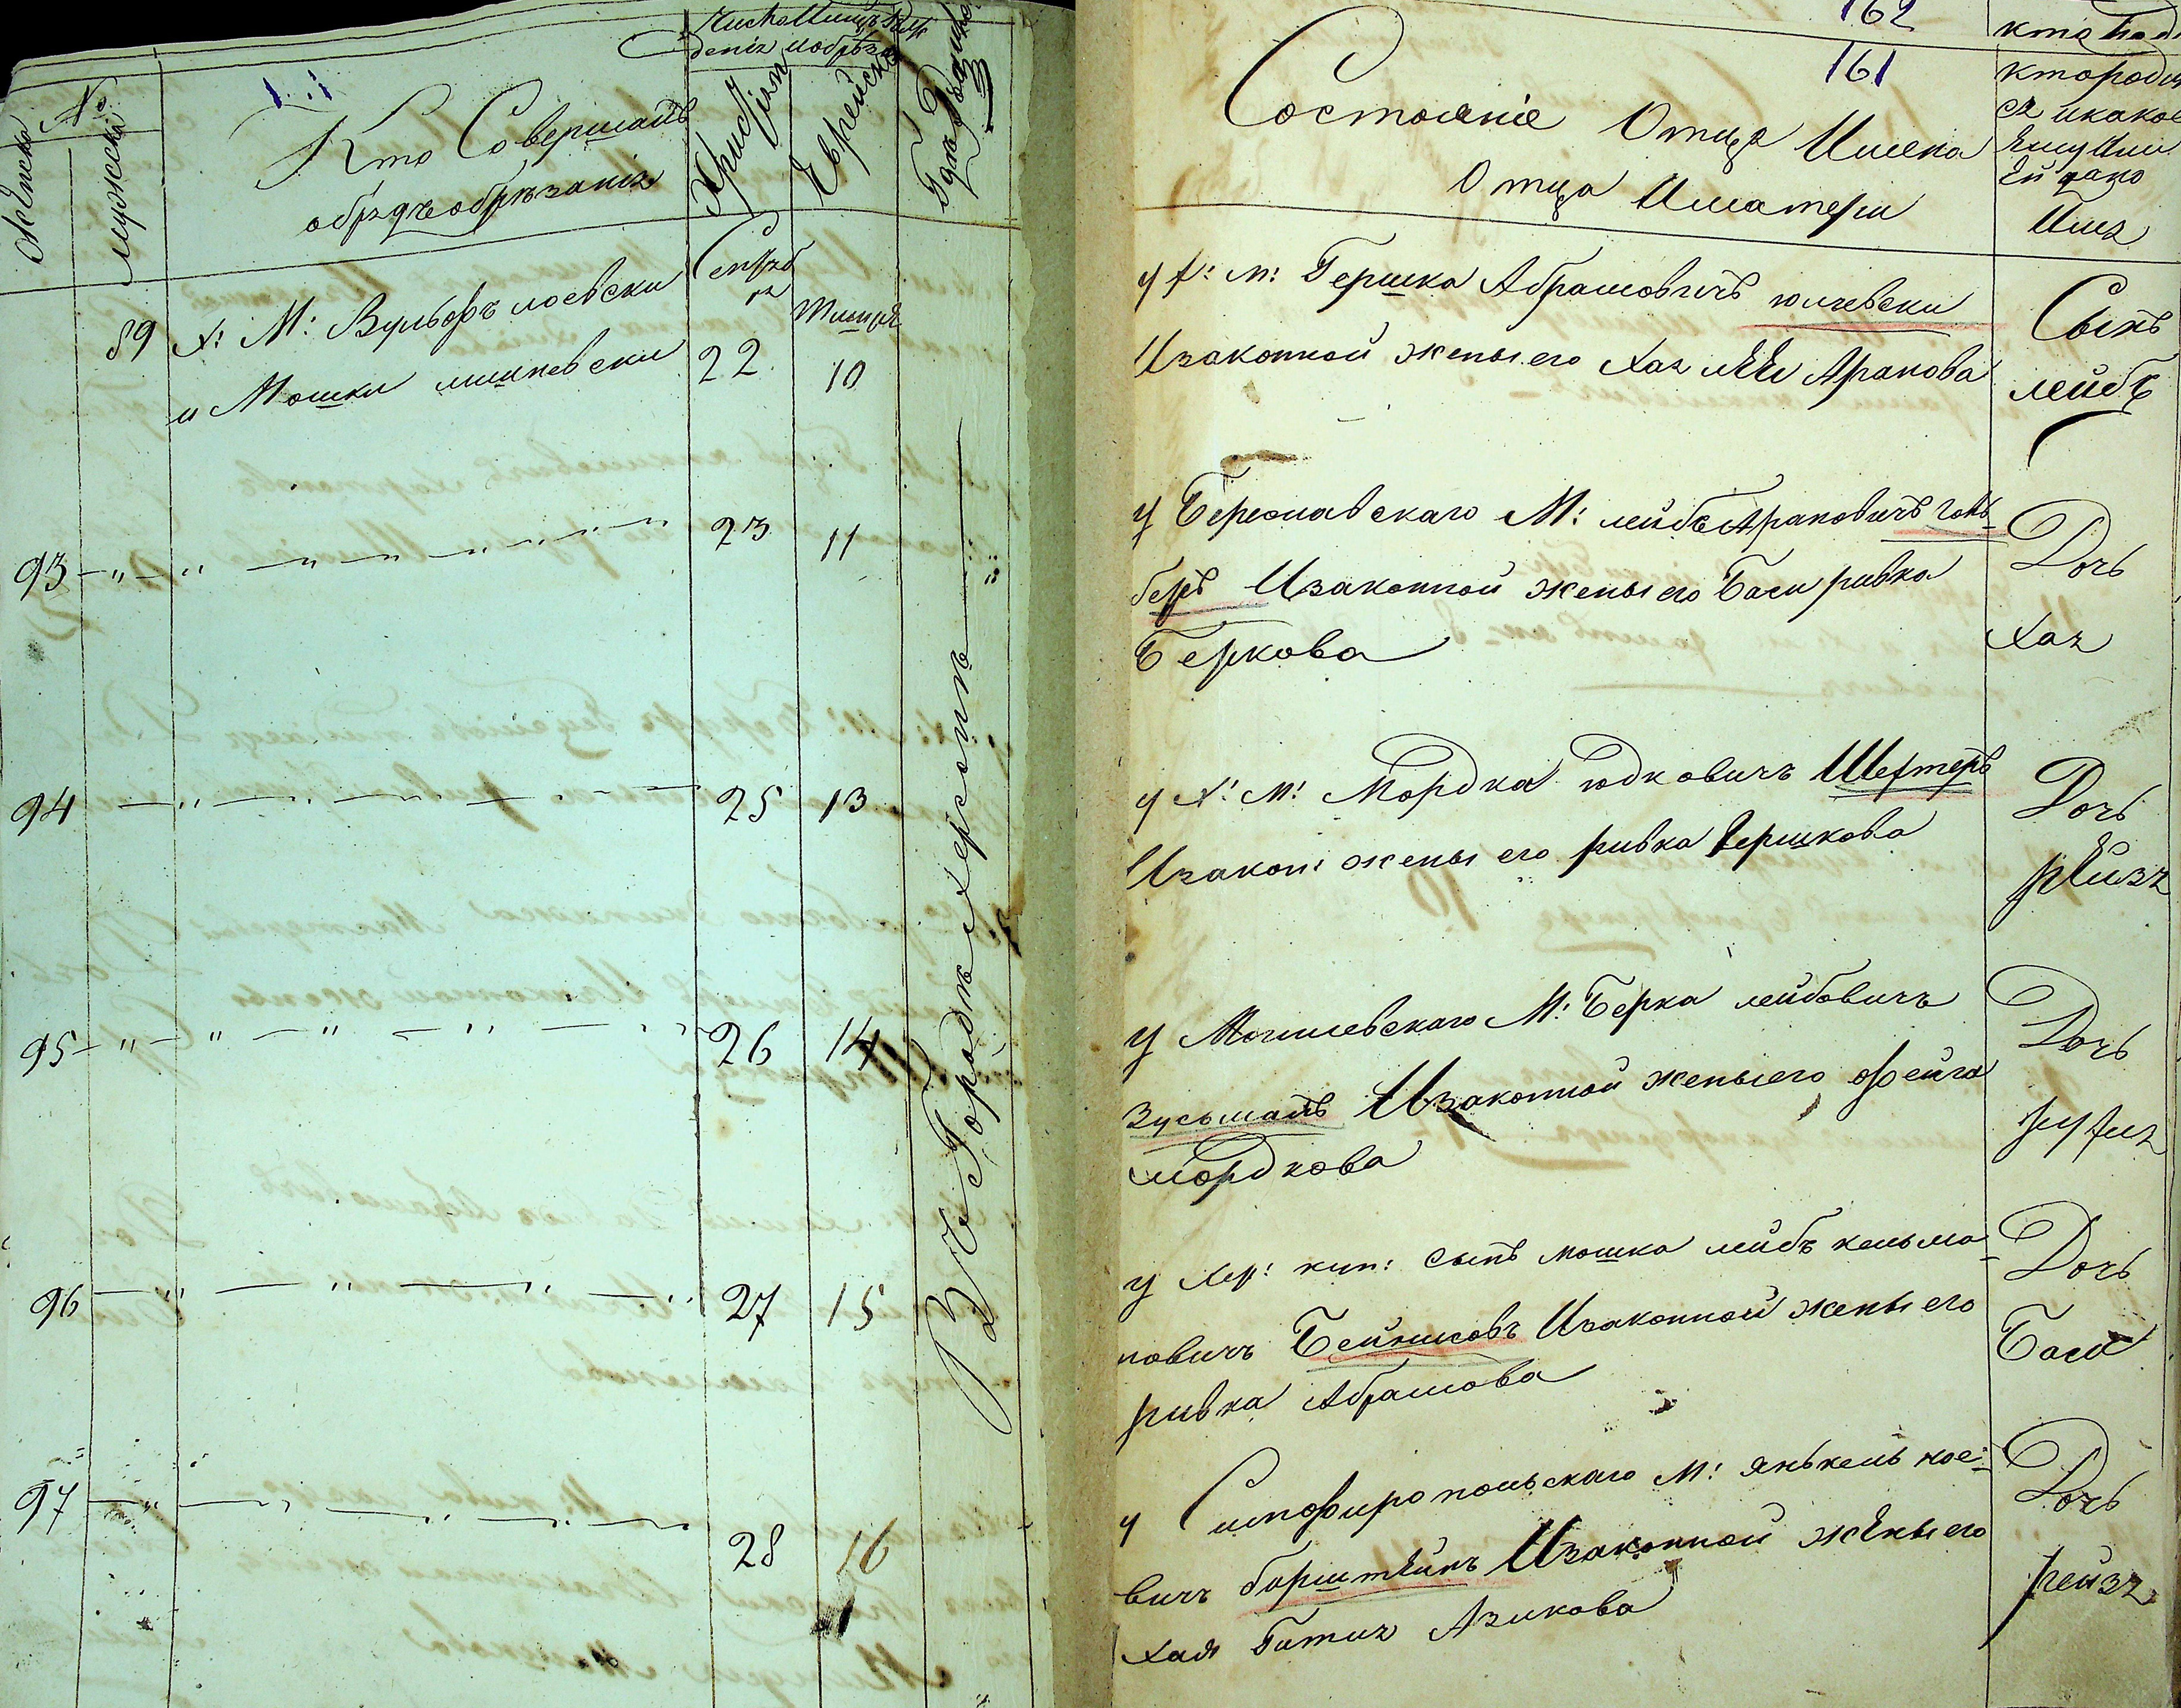 №
Женска
мужеска
Кто Совершалъ
обрядъ обрѣзанія
Число
денія и обрѣза
Христіан
Еврейско
Гдѣ
Сентяб
ря
Тишря
89 Х: М: Вульфъ лоевски 22 10
и Мошка
93 23 11
94 25 13
95 26 14
96 27 15
97 28 16
Въ Городѣ херсонѣ
162
кто
161
Состояніе Отца Имена
Отца Иматери
кто роди
ся икакое
Ему или
Ей дано
Имя
у х: м: Гершка Абрамовичъ юлчевски
Изаконной жены его Хая леи Аранова
Сынъ
лейбъ
у Бериславскаго М: лейбъ Арановичъ голь
беръ Изаконной жены его Баси ривка
Беркова
Дочь
хая
у х: м: Мордка юдковичъ Шехтеръ
Изакон: жены его ривка Гершкова
Дочь
рейзя
у Могилевскаго М: Берка лейбовичъ
Зусьманъ Изаконной жены его фейга
мордкова
Дочь
рухля
у хер: куп: сынъ мошка лейбъ кельма
новичъ Бейнисовъ Изаконной жены его
ривка Абрамова
Дочь
Бася
у Симфиропольскаго м: янькель ное
вичъ борштейнъ Изаконной жены его
хая Гитля Азикова
Дочь
рейзя